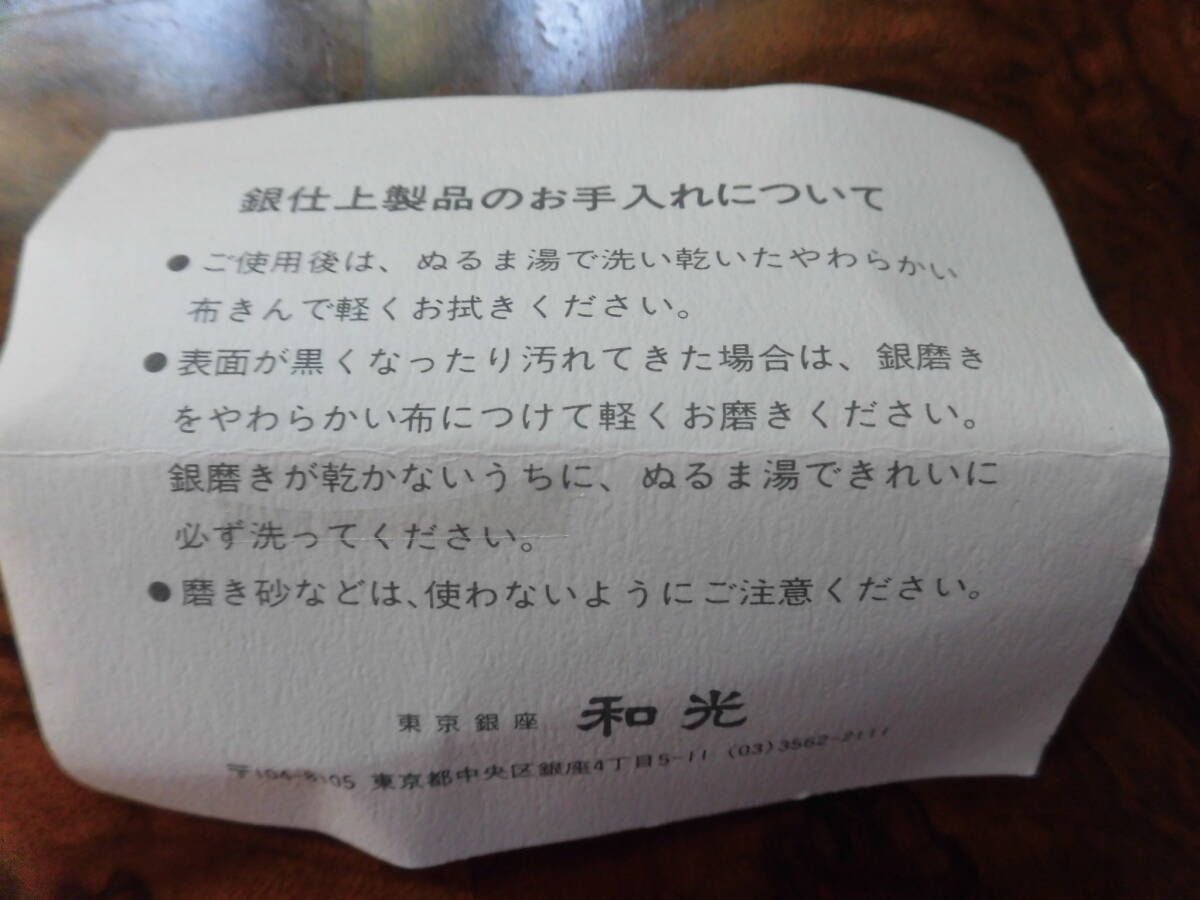 銀仕上製品のお手入れについて
●ご使用後は、ぬるま湯で洗い乾いたやわらかい
布きんで軽くお拭きください。
●表面が黒くなったり汚れてきた場合は、銀磨き
をやわらかい布につけて軽くお磨きください。
銀磨きが乾かないうちに、ぬるま湯できれいに
必ず洗ってください。
●磨き砂などは、使わないようにご注意ください。
東京銀座 和光
〒104-8105 東京都中央区銀座4丁目5-11 (03)3562-2111